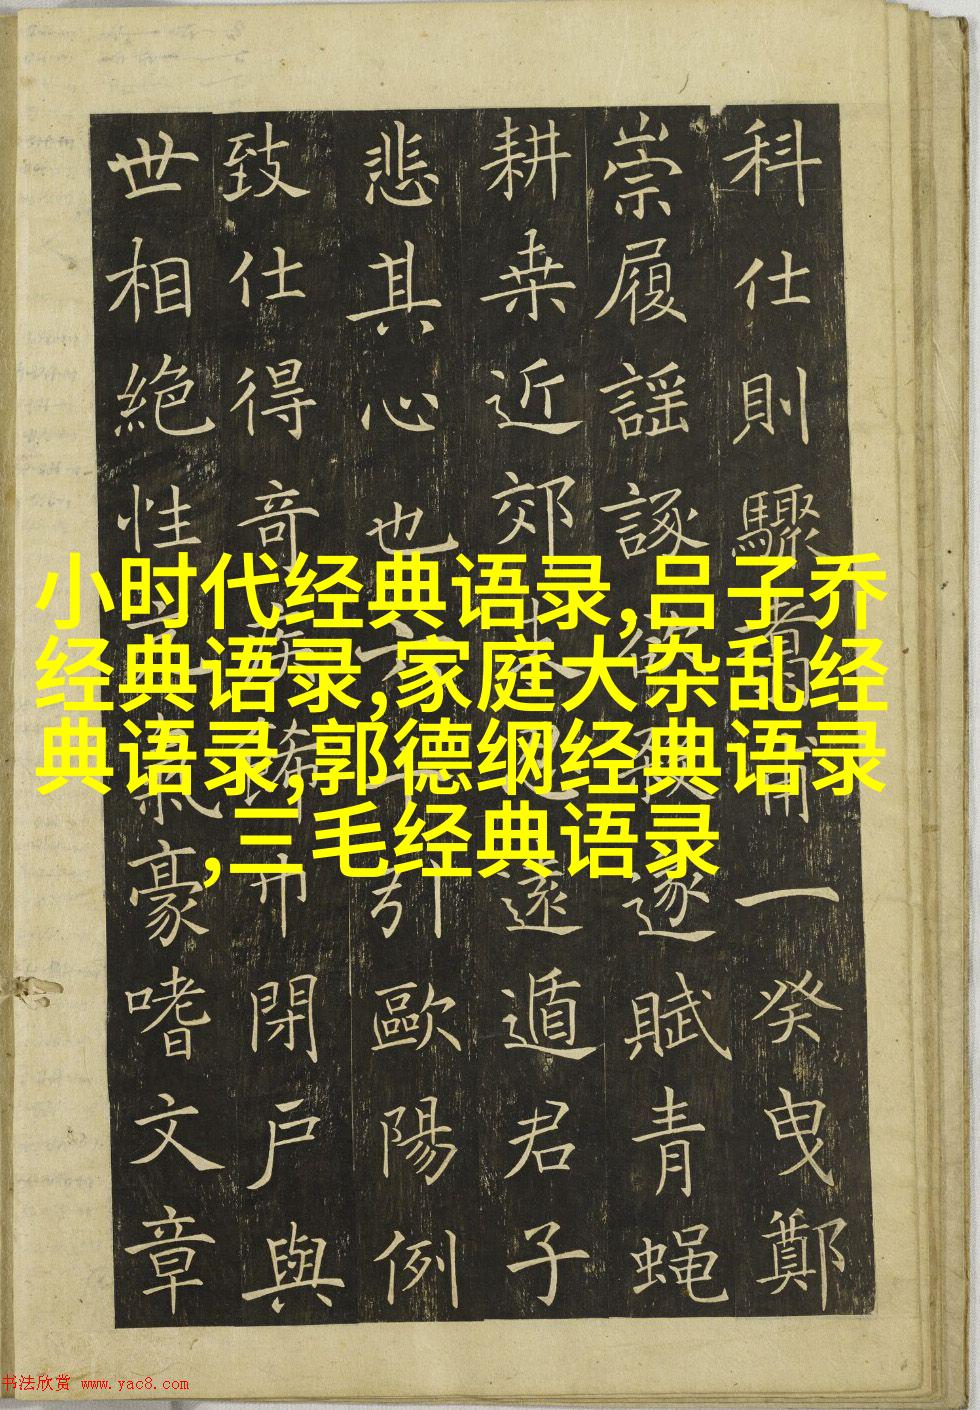 科仕則驟一癸曳鄭
崇履謡諑逐賦青蝇
耕桒近郊遠遁君子
悲其心也引歐陽例
致仕得奇閉戶與
世相絶性豪嗜文章
小时代经典语录,吕子乔
经典语录,家庭大杂乱经
典语录,郭德纲经典语录
,三毛经典语录
书法欣赏 www.yac8.com